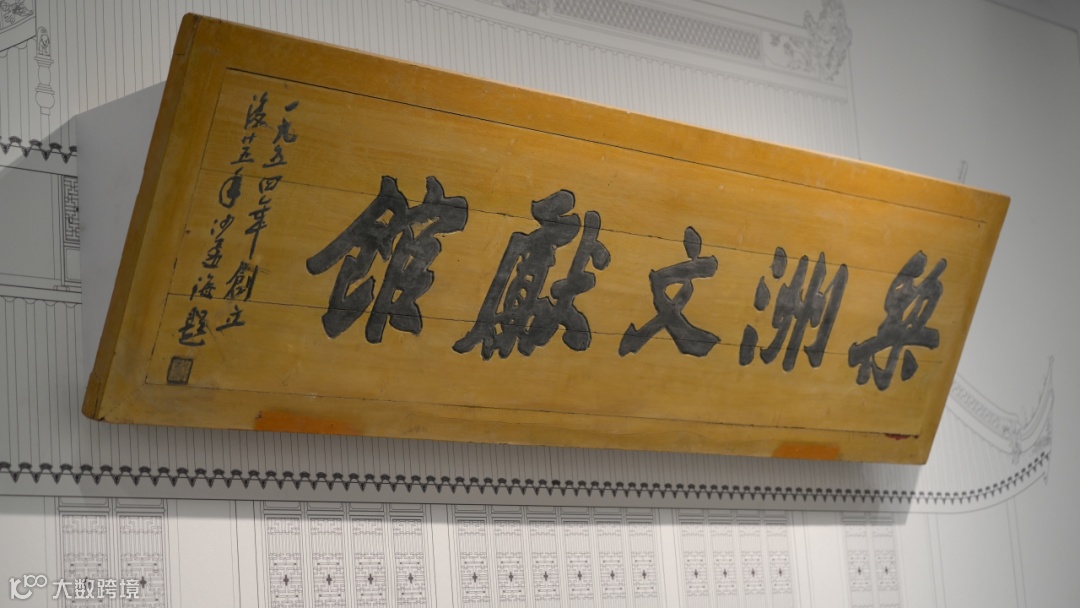 梨洲文獻館
一九五四年創立
後廿五年沙孟海題
大数跨境